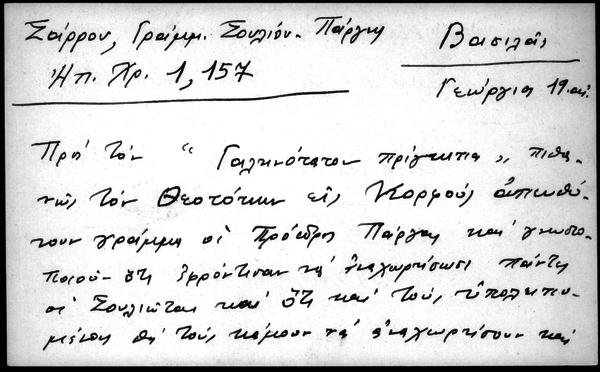 Σάρρου, Γράμμ. Σουλίου - Πάργας
Βασιλᾶς
Ἠπ. Χρ. 1, 157
Γεώργιος 19. αἰ.
Πρὸς τὸν "Γαληνότατον πρίγκιπα", πιθα-
νῶς τὸν Θεοτόκην εἰς Κορφοὺς ἀπευθύ-
νουν γράμμα οἱ Πρόεδροι Πάργας καὶ γνωστο-
ποιοῦν ὅτι ἐφρόντισαν νὰ ἀναχωρήσωσι πάντες
οἱ Σουλιῶται καὶ ὅτι καὶ τοὺς ὑπολειπο-
μένους θὰ τοὺς κάμουν νὰ ἀναχωρήσουν καὶ